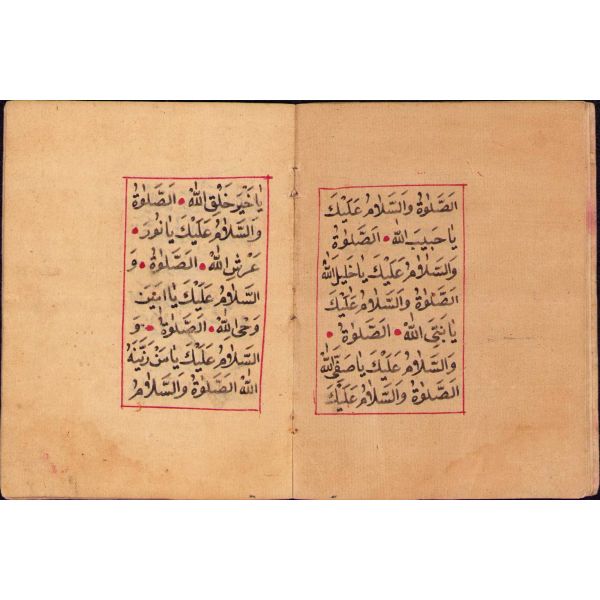 الصَّلٰوةُ وَالسَّلَامُ عَلَيْكَ
يَا حَبِيبَ اللّٰهِ • الصَّلٰوةُ
وَالسَّلَامُ عَلَيْكَ يَا خَلِيلَ اللّٰهِ
الصَّلٰوةُ وَالسَّلَامُ عَلَيْكَ
يَا نَبِىَّ اللّٰهِ • الصَّلٰوةُ •
وَالسَّلَامُ عَلَيْكَ يَا صَفِىَّ اللّٰهِ
الصَّلٰوةُ وَالسَّلَامُ عَلَيْكَ
يَا خَيْرَ خَلْقِ اللّٰهِ • الصَّلٰوةُ
وَالسَّلَامُ عَلَيْكَ يَا نُورَ •
عَرْشِ اللّٰهِ • الصَّلٰوةُ • وَ
السَّلَامُ عَلَيْكَ يَا اَمِينَ
وَحْىِ اللّٰهِ • الصَّلٰوةُ • وَ
السَّلَامُ عَلَيْكَ يَا مَنْ زَيَّنَهُ
اللّٰهُ الصَّلٰوةُ وَالسَّلَامُ